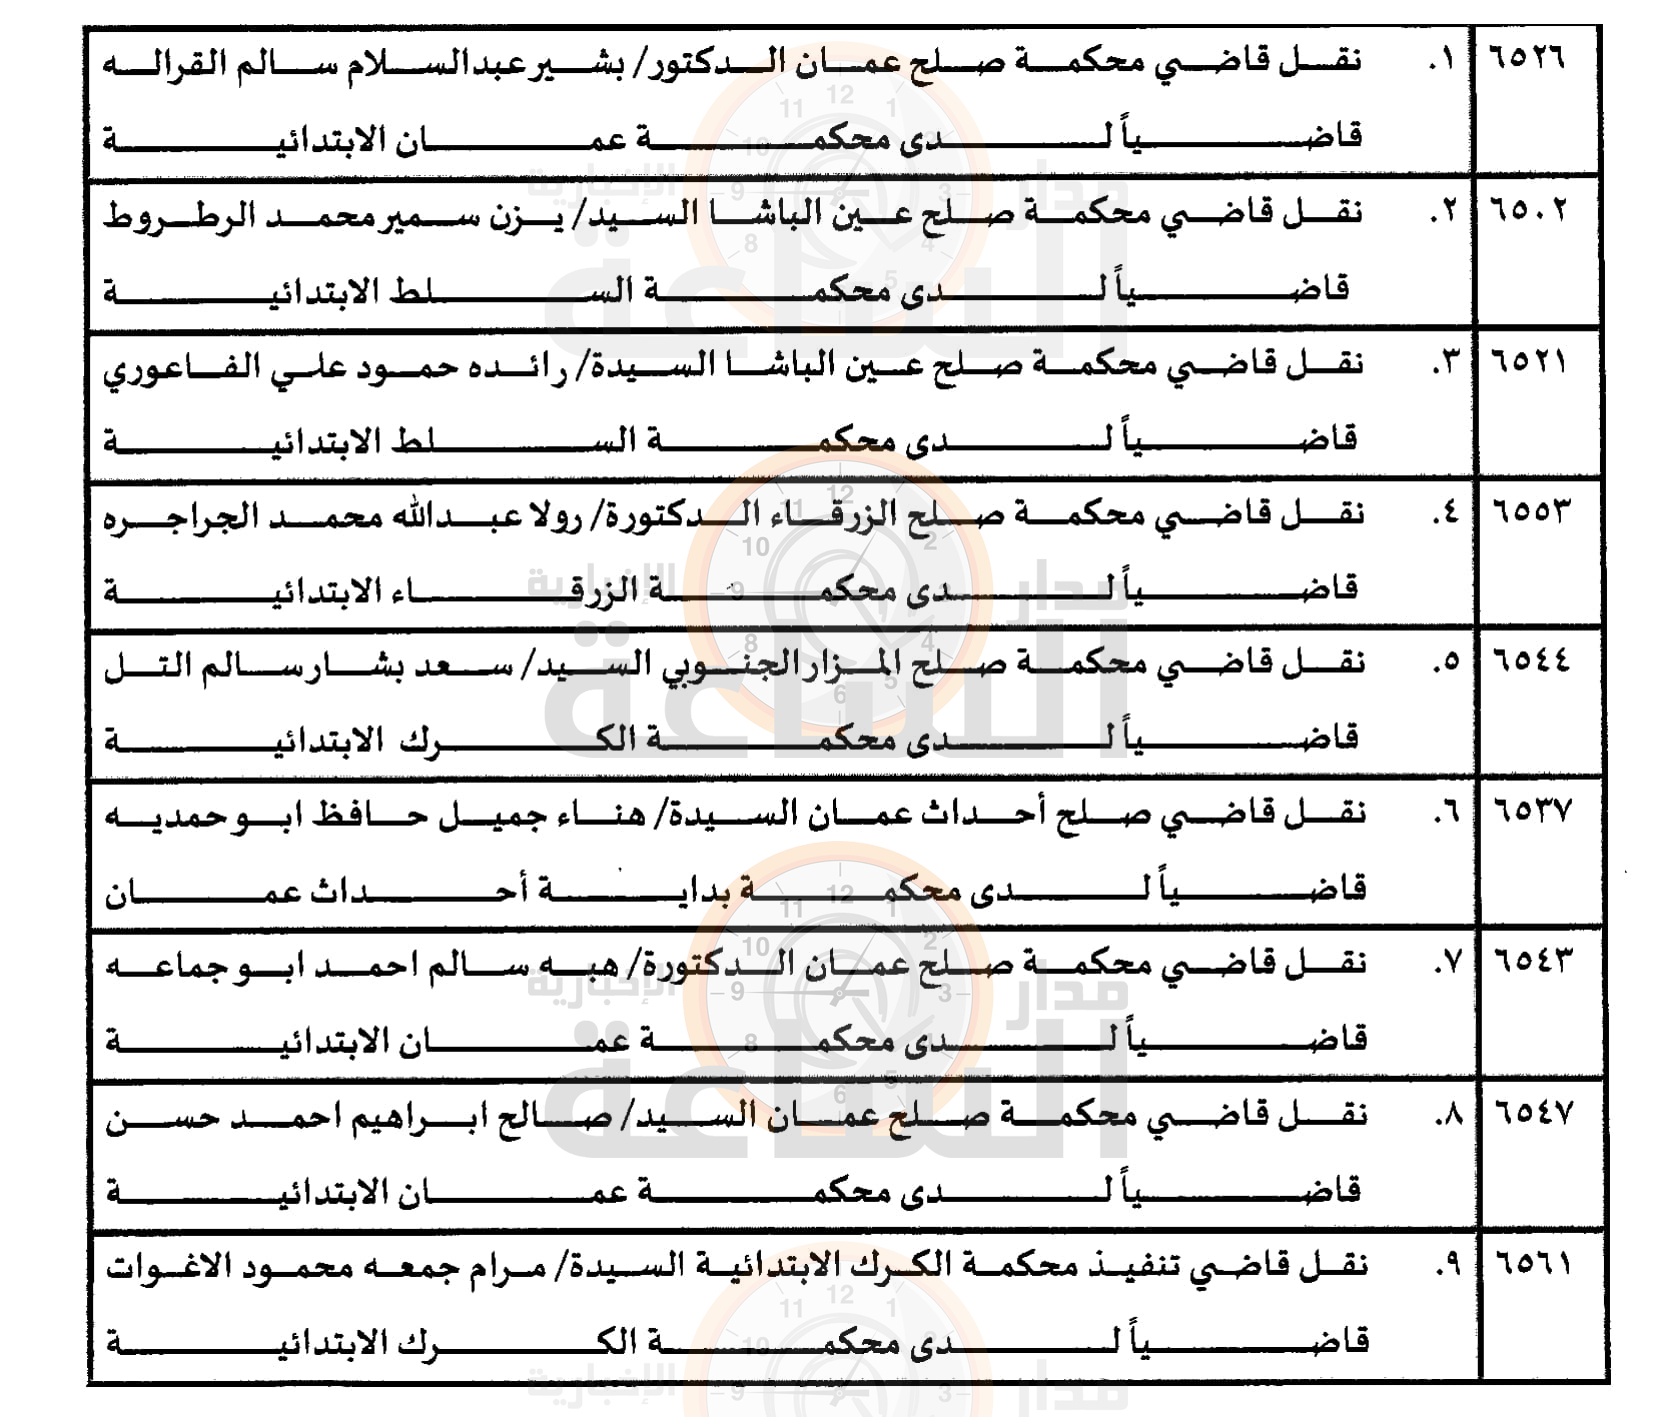 ٦٥٢٦ ١. نقل قاضي محكمة صلح عمان الدكتور/ بشير عبدالسلام سالم القراله
قاضياً لدى محكمة عمان الابتدائية
٦٥٠٢ ٢. نقل قاضي محكمة صلح عين الباشا السيد/ يزن سمير محمد الرطروط
قاضياً لدى محكمة السلط الابتدائية
٦٥٢١ ٣. نقل قاضي محكمة صلح عين الباشا السيدة/ رائده حمود علي الفاعوري
قاضياً لدى محكمة السلط الابتدائية
٦٥٥٣ ٤. نقل قاضي محكمة صلح الزرقاء الدكتورة/ رولا عبدالله محمد الجراجره
قاضياً لدى محكمة الزرقاء الابتدائية
٦٥٤٤ ٥. نقل قاضي محكمة صلح المزار الجنوبي السيد/ سعد بشار سالم التل
قاضياً لدى محكمة الكرك الابتدائية
٦٥٣٧ ٦. نقل قاضي صلح أحداث عمان السيدة/ هناء جميل حافظ ابو حمديه
قاضياً لدى محكمة بداية أحداث عمان
٦٥٤٣ ٧. نقل قاضي محكمة صلح عمان الدكتورة/ هبه سالم احمد ابو جماعه
قاضياً لدى محكمة عمان الابتدائية
٦٥٤٧ ٨. نقل قاضي محكمة صلح عمان السيد/ صالح ابراهيم احمد حسن
قاضياً لدى محكمة عمان الابتدائية
٦٥٦١ ٩. نقل قاضي تنفيذ محكمة الكرك الابتدائية السيدة/ مرام جمعه محمود الاغوات
قاضياً لدى محكمة الكرك الابتدائية
مدار الساعة الإخبارية